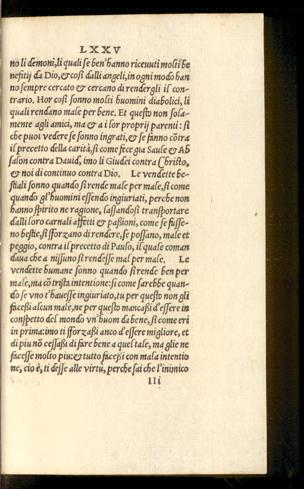 LXXV
no li demoni, li quali se ben' hanno riceuuti molti be
nefitij da Dio, & così dalli angeli, in ogni modo han
no sempre cercato & cercano di rendergli il con-
trario. Hor così sonno molti huomini diabolici, li
quali rendano male per bene. Et questo non sola-
mente agli amici, ma & a i lor proprij parenti: sì
che puoi vedere se sonno ingrati, & se fanno cōtra
il precetto della carità, sì come fece gia Saule & Ab
salon contra Dauid, imo li Giudei contra Christo,
& noi di continuo contra Dio. Le vendette be-
stiali sonno quando si rende male per male, sì come
quando gl'huomini essendo ingiuriati, perche non
hanno spirito ne ragione, lassandosi transportare
dalli loro carnali affetti & passioni, come se fusse-
no bestie, si sforzano di rendere, se possano, male et
peggio, contra il precetto di Paulo, il quale coman
daua che a nissuno si rendesse mal per male. Le
vendette humane sonno quando si rende ben per
male, ma cō trista intentione: sì come sarebbe quan-
do se vno t'hauesse ingiuriato, tu per questo non gli
facessi alcun male, ne per questo mancassi d'essere in
conspetto del mondo vn'huom da bene, sì come eri
in prima: imo ti sforzassi anco d'essere migliore, et
di piu nō cessassi di fare bene a quel tale, ma glie ne
facesse molto piu: & tutto facessi con mala intentio
ne, cio è, ti desse alle virtù, perche sai che l'inimico
lli